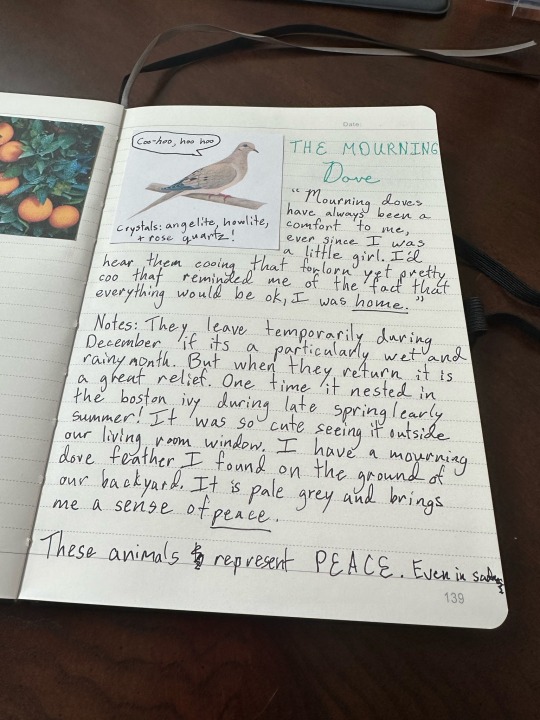 Date:
Coo-hoo, hoo hoo
Crystals: angelite, howlite,
+ rose quartz!
THE MOURNING
Dove
"Mourning doves
have always been a
comfort to me,
ever since I was
a little girl. I'd
hear them cooing that forlorn yet pretty
coo that reminded me of the fact that
everything would be ok, I was home."
Notes: They leave temporarily during
December if its a particularly wet and
rainy month. But when they return it is
a great relief. One time it nested in
the boston ivy during late spring/early
summer! It was so cute seeing it outside
our living room window. I have a mourning
dove feather I found on the ground of
our backyard. It is pale grey and brings
me a sense of peace.
These animals represent PEACE. Even in
139